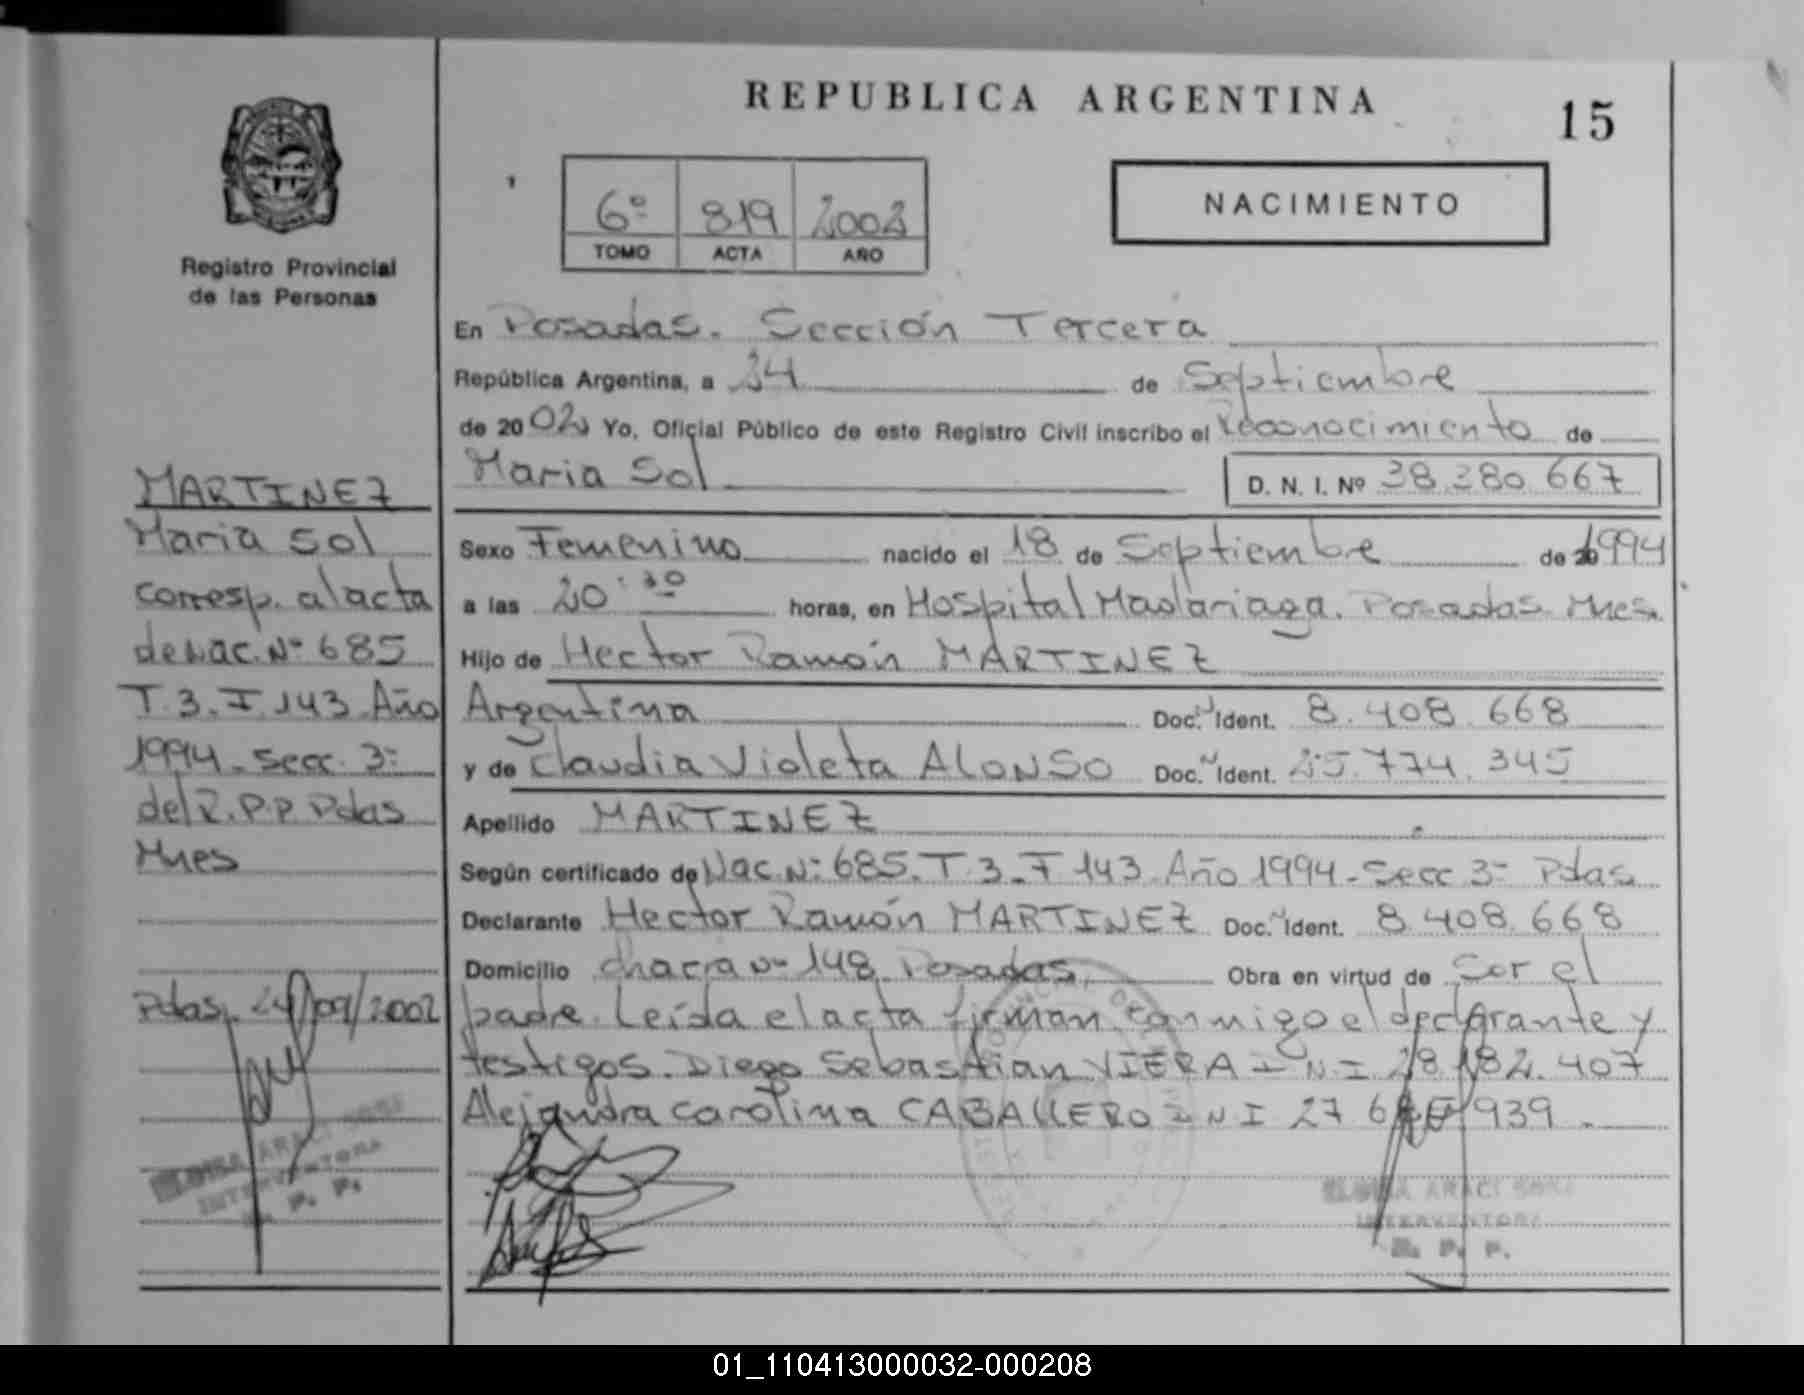 REPUBLICA ARGENTINA
15
6º 819 2002
TOMO ACTA AÑO
NACIMIENTO
Registro Provincial
de las Personas
En Posadas. Sección Tercera
República Argentina, a 24 de Septiembre
de 2002 Yo, Oficial Público de este Registro Civil inscribo el Reconocimiento de
Maria Sol D. N. I. Nº 38.380.667
Sexo Femenino nacido el 18 de Septiembre de 1994
a las 20:30 horas, en Hospital Madariaga. Posadas Mnes.
Hijo de Hector Ramón MARTINEZ
Argentina Doc. Ident. 8.408.668
y de Claudia Violeta ALONSO Doc. Ident. 25.774.345
Apellido MARTINEZ
Según certificado de Nac. Nº 685. T.3_F 143. Año 1994_Secc 3º Pdas
Declarante Hector Ramón MARTINEZ Doc. Ident. 8.408.668
Domicilio chacra Nº 148. Posadas. Obra en virtud de Ser el
padre. Leída el acta firman conmigo el declarante y
testigos. Diego Sebastian VIERA DNI 28.182.407
Alejandra Carolina CABALLERO DNI 27 939.
MARTINEZ
Maria Sol
corresp. al acta
de Nac. Nº 685
T.3_F.143.Año
1994_secc. 3º
del R.P.P. Pdas
Mnes
Pdas, 24/09/2002
ARACI
INTERVENTORA
R. P. P.
ARACI
INTERVENTORA
R. P. P.
01_110413000032-000208